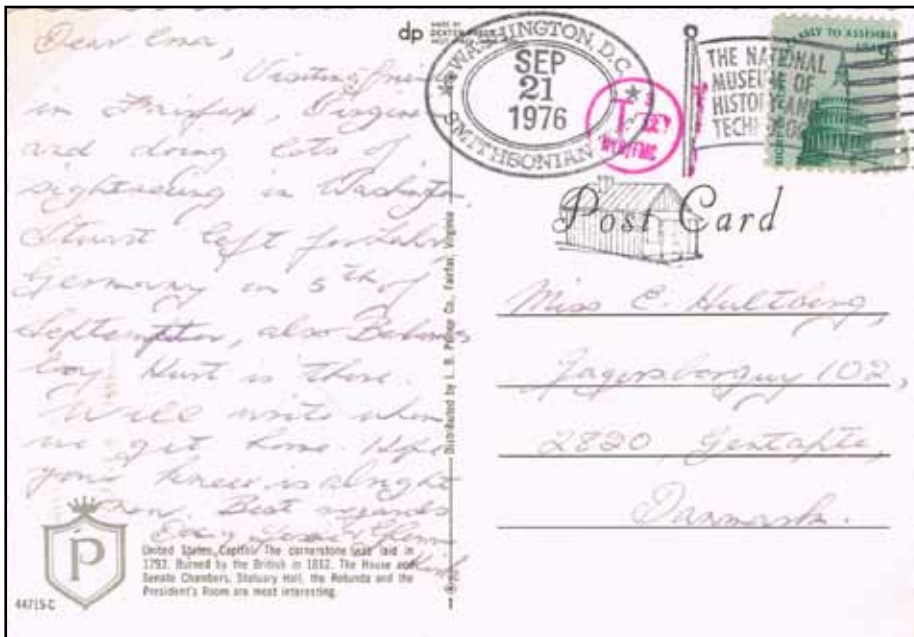 Dear
Visiting
in Fairfax, Virginia
and doing lots of
sightseeing in Washington.
Stuart left for
Germany on 5th of
September, also
boy Kurt is there.
Will write when
we get home. Hope
your knee is alright
now. Best regards
P
United States Capitol. The cornerstone was laid in
1793. Burned by the British in 1812. The House and
Senate Chambers, Statuary Hall, the Rotunda and the
President's Room are most interesting.
44715-C
Distributed by L. B. Prince Co., Fairfax, Virginia
dp MADE BY
DEXTER
WASHINGTON, D.C.
SEP
21
1976
SMITHSONIAN
T
THE NATIONAL
MUSEUM OF
HISTORY AND
TECHNOLOGY
TO ASSEMBLE
Post Card
Miss E. Hultberg,
102,
2820, Gentofte,
Danmark.